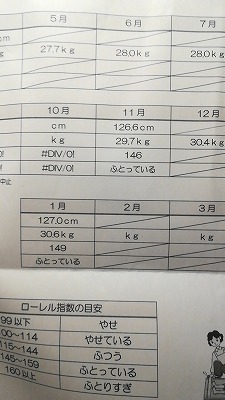 5月 6月 7月
cm
kg 27.7kg 28.0kg 28.0kg
10月 11月 12月
cm 126.6cm
kg 29.7kg 30.4kg
0! #DIV/0! 146
0! #DIV/0! ふとっている
中止
1月 2月 3月
127.0cm
30.6kg kg kg
149
ふとっている
ローレル指数の目安
99以下 やせ
00~114 やせている
115~144 ふつう
145~159 ふとっている
160以上 ふとりすぎ